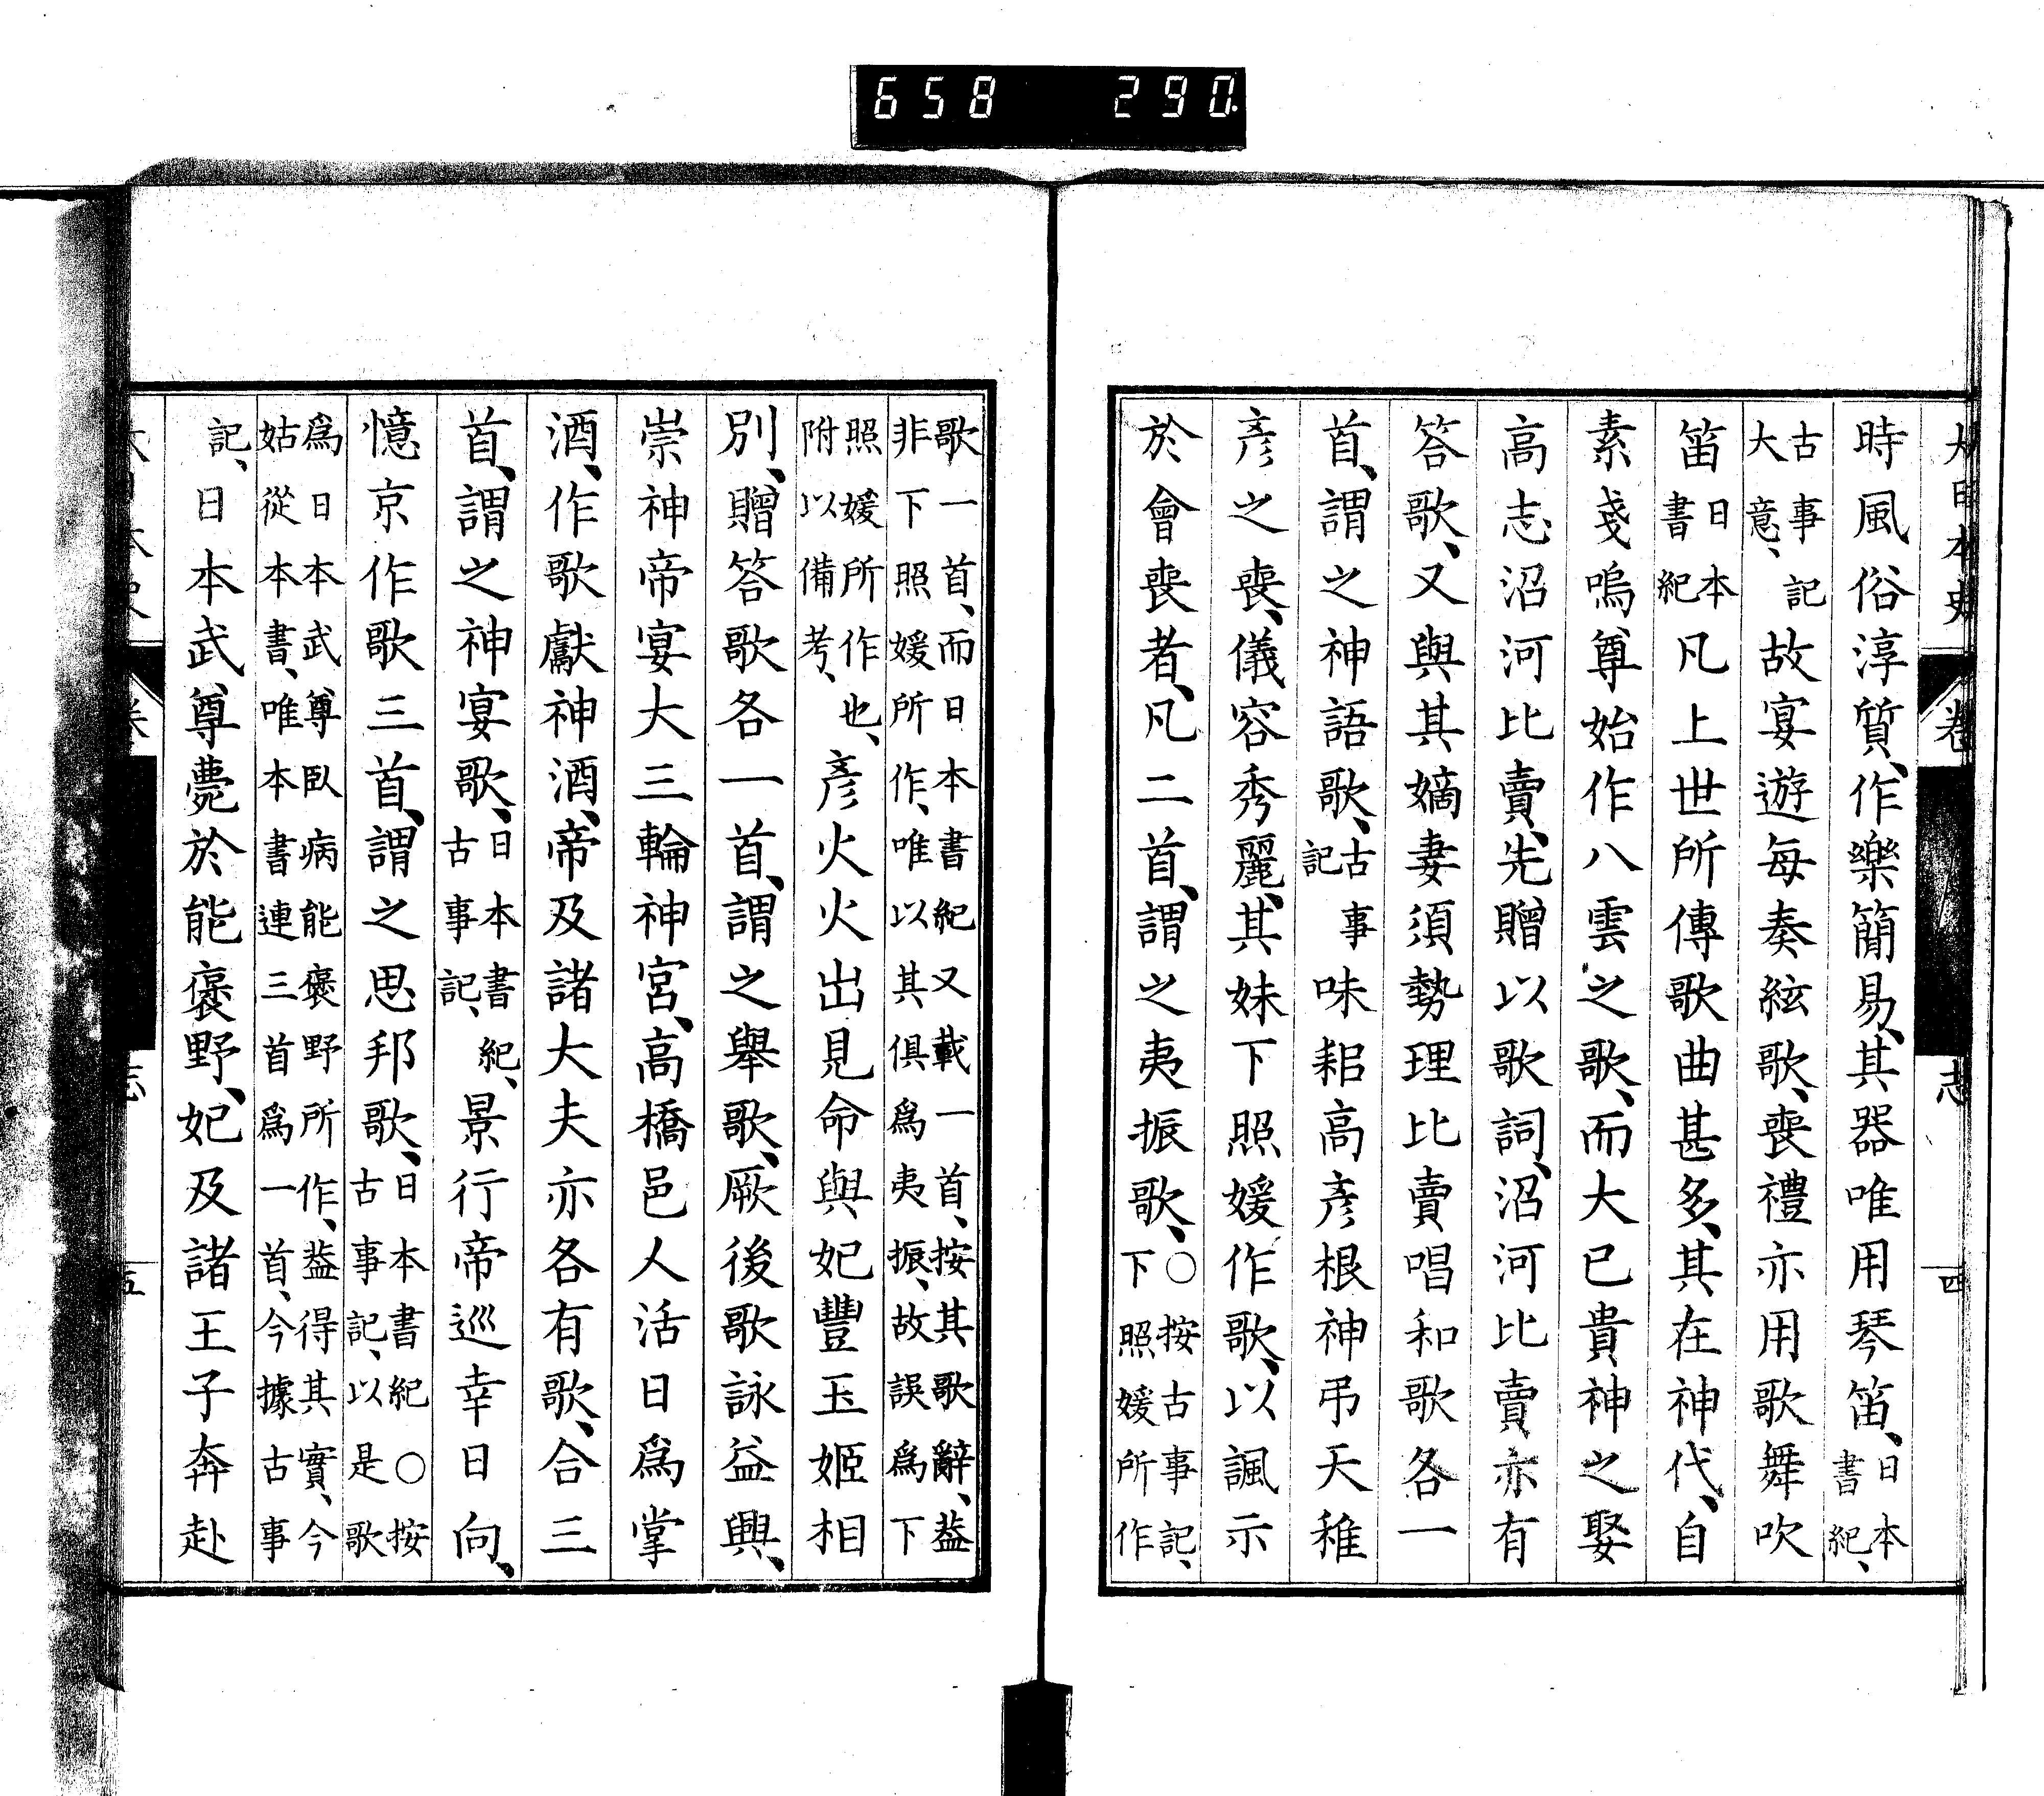 658 290.
大日本史 卷 志 四
時風俗淳質、作樂簡易、其器唯用琴笛、日本書紀、
古事記大意、故宴遊每奏絃歌、喪禮亦用歌舞吹
笛日本書紀凡上世所傳歌曲甚多、其在神代、自
素戔嗚尊始作八雲之歌、而大已貴神之娶
高志沼河比賣、先贈以歌詞、沼河比賣亦有
答歌、又與其嫡妻須勢理比賣唱和歌各一
首、謂之神語歌、古事記味耜高彥根神弔天稚
彥之喪、儀容秀麗、其妹下照媛作歌、以諷示
於會喪者、凡二首、謂之夷振歌、○按古事記、下照媛所作
歌一首、而日本書紀又載一首、按其歌辭、蓋非下照媛所作、唯以其俱爲夷振、故誤爲下
照媛所作也、附以備考、彥火火出見命與妃豐玉姬相
別、贈答歌各一首、謂之舉歌、厥後歌詠益興、
崇神帝宴大三輪神宮、高橋邑人活日爲掌
酒、作歌獻神酒、帝及諸大夫亦各有歌、合三
首、謂之神宴歌、日本書紀、古事記、景行帝巡幸日向、
憶京作歌三首、謂之思邦歌、日本書紀○按古事記、以是歌
爲日本武尊臥病能褒野所作、蓋得其實、今姑從本書、唯本書連三首爲一首、今據古事
記、日本武尊薨於能褒野、妃及諸王子奔赴
志 五